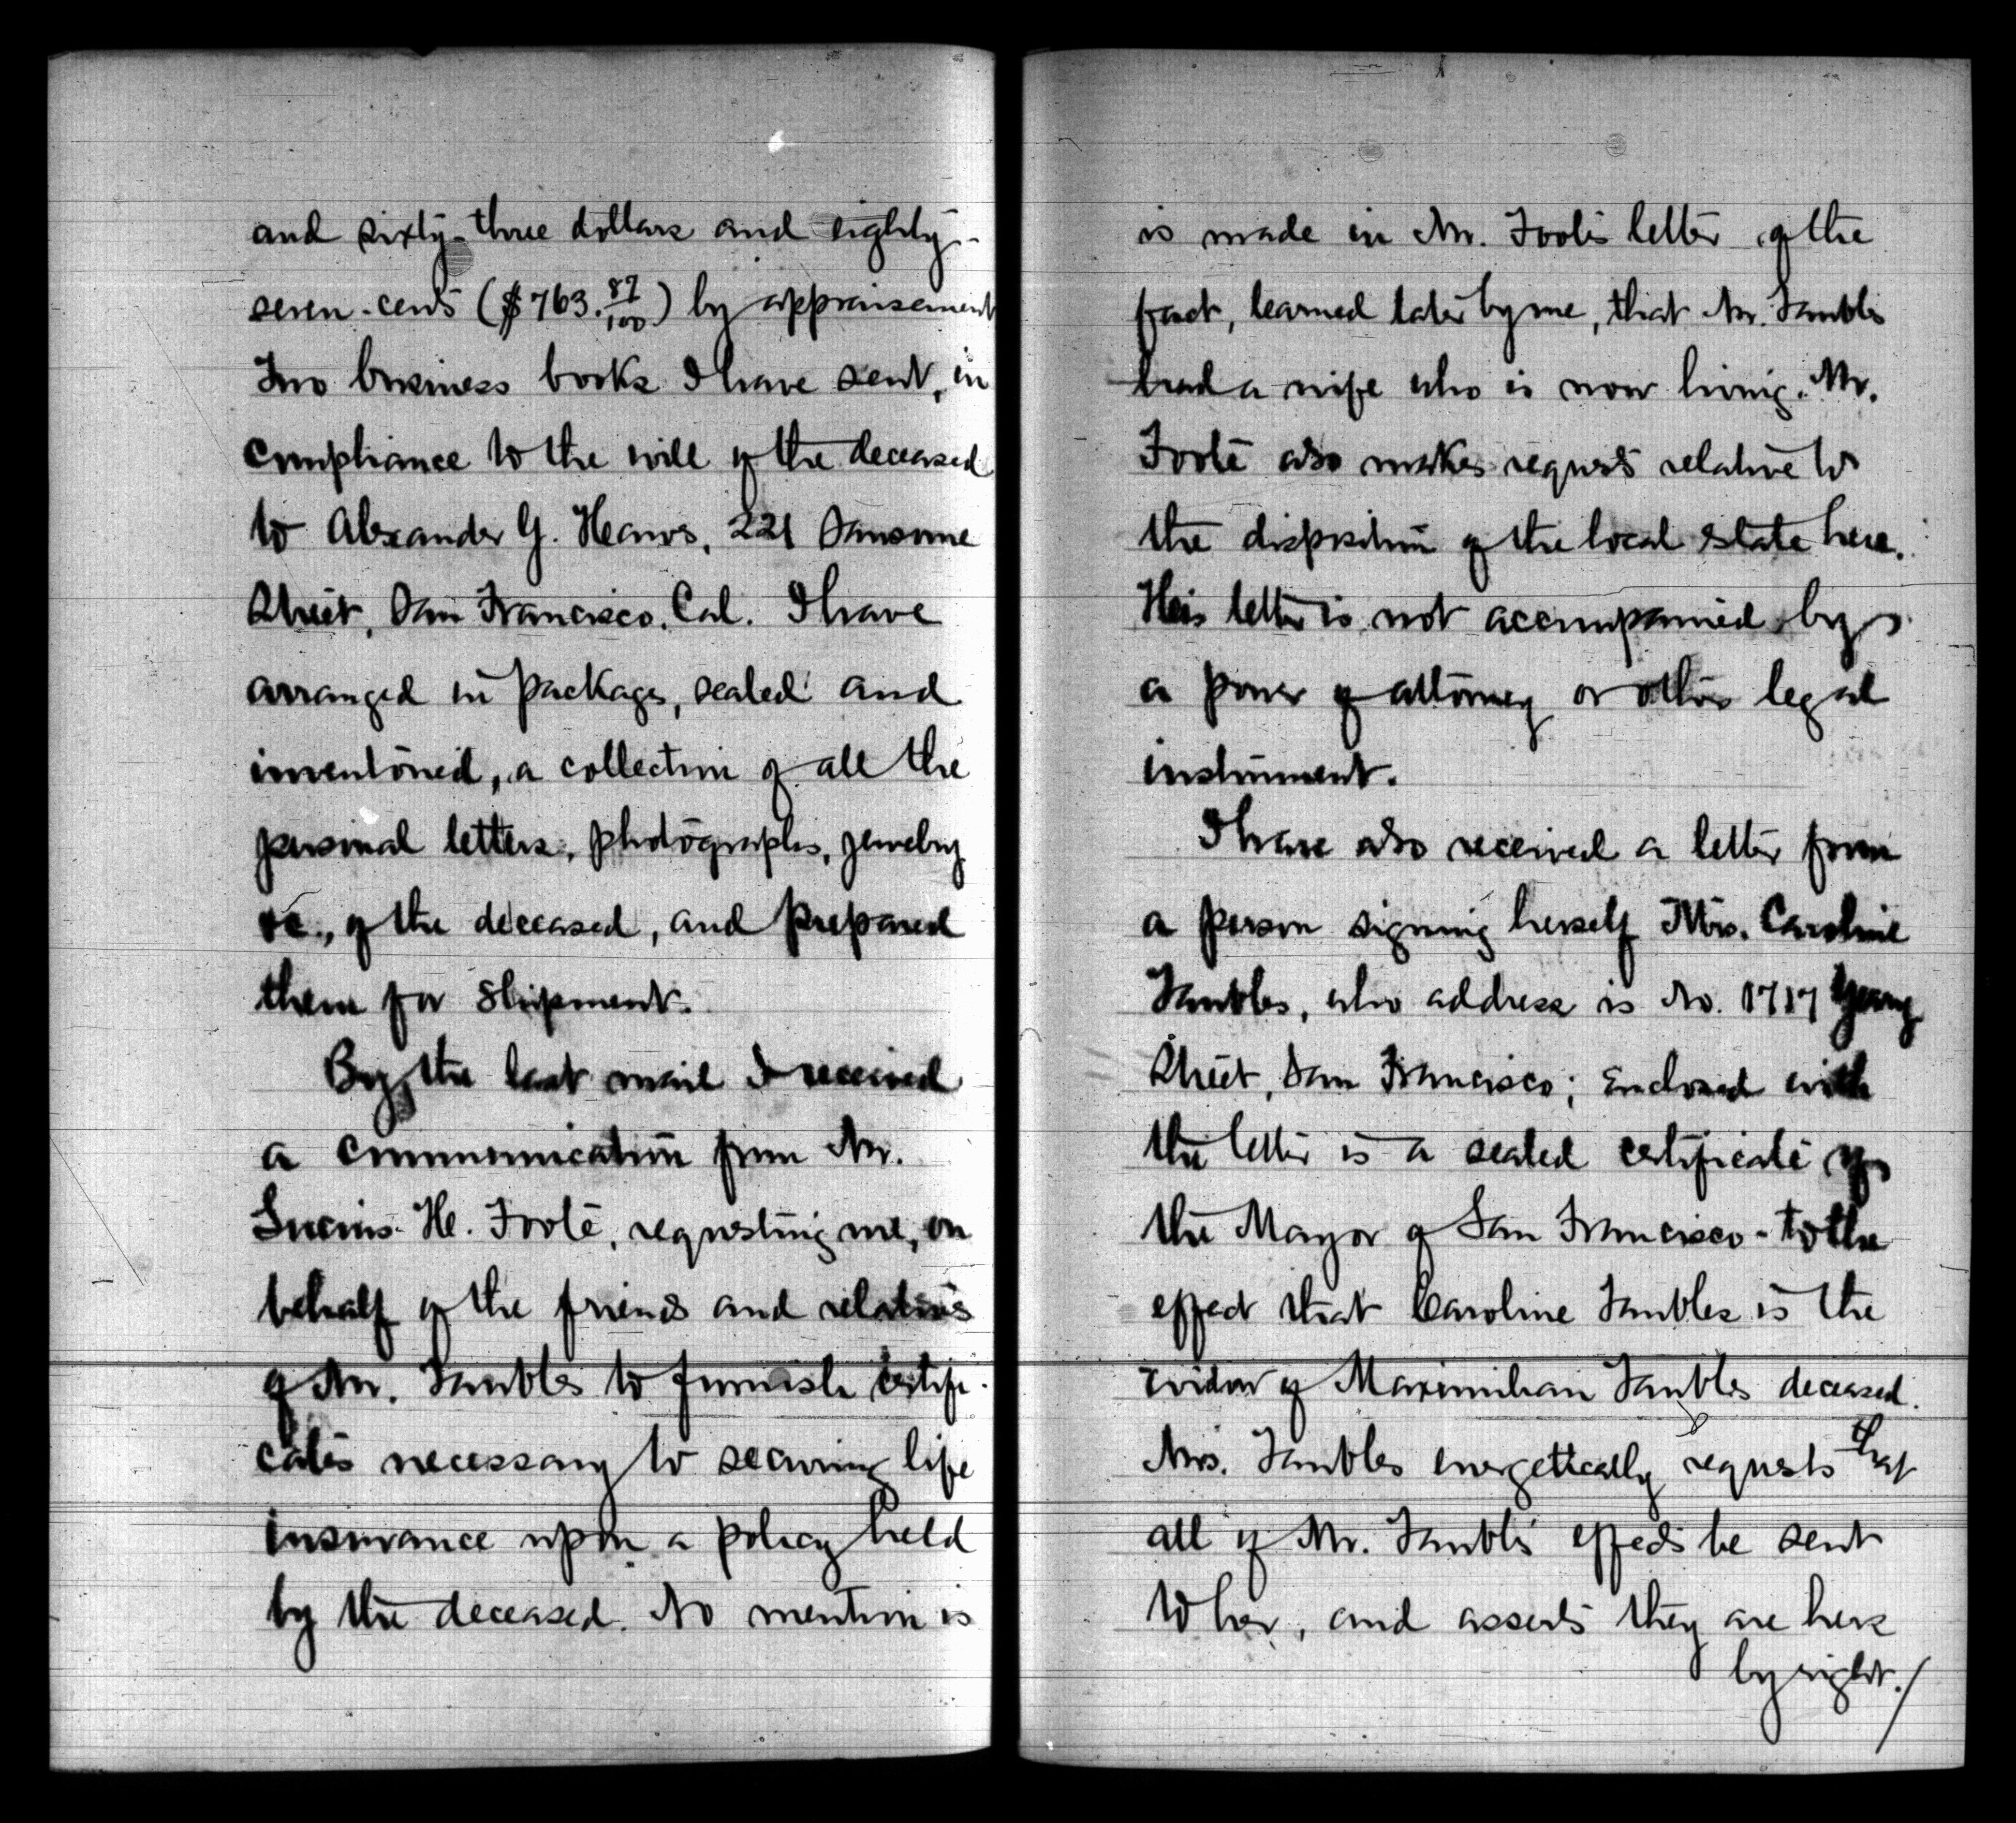 and sixty-three dollars and eighty-
seven-cents ($763.87/100) by appraisement
Two business books I have sent, in
compliance to the will of the deceased
to Alexander G. Hawes, 221 Sansome
Street, San Francisco, Cal. I have
arranged in packages, sealed and
inventoried, a collection of all the
personal letters, photographs, jewelry
&c., of the deceased, and prepared
them for shipment.
By the last mail I received
a communication from Mr.
Lucius H. Foote, requesting me, on
behalf of the friends and relatives
of Mr. Taubles to furnish certifi-
cates necessary to securing life
insurance upon a policy held
by the deceased. No mention is
is made in Mr. Foote's letter of the
fact, learned later by me, that Mr. Taubles
had a wife who is now living. Mr.
Foote also makes requests relative to
the disposition of the local estate here.
His letter is not accompanied by
a power of attorney or other legal
instrument.
I have also received a letter from
a person signing herself Mrs. Caroline
Taubles, who address is No. 1717 Geary
Street, San Francisco; Enclosed with
the letter is a sealed certificate of
the Mayor of San Francisco - to the
effect that Caroline Taubles is the
widow of Maximilian Taubles deceased.
Mrs. Taubles energetically requests that
all of Mr. Taubles' effects be sent
to her, and asserts they are hers
by right./